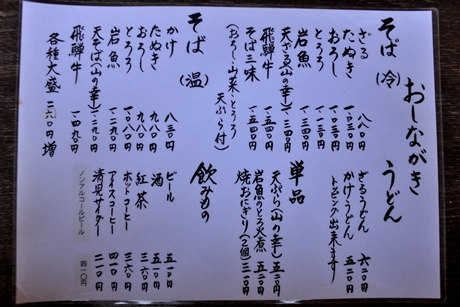 おしながき
そば(冷)
ざる 八八〇円
たぬき 一.〇三〇円
おろし 一.〇三〇円
とろろ
岩魚 一.三四〇円
天ざる(山の幸) 一.三四〇円
飛騨牛 一.五四〇円
そば三味 一.五四〇円
(おろし・山菜・とろろ
天ぷら付)
そば(温)
かけ 八三〇円
たぬき 九八〇円
おろし 九八〇円
とろろ 一.〇八〇円
岩魚 一.二九〇円
天そば(山の幸) 一.二九〇円
飛騨牛 一.四九〇円
各種大盛 二六〇円増
うどん
ざるうどん 六二〇円
かけうどん 五二〇円
トッピング出来ます
単品
天ぷら(山の幸) 五二〇円
岩魚のとろ火煮 五二〇円
焼おにぎり(2個)
飲みもの
ビール 五一〇円
酒 五一〇円
紅茶 三六〇円
ホットコーヒー 三六〇円
アイスコーヒー 四一〇円
清見サイダー 二一〇円
ノンアルコールビール 四一〇円